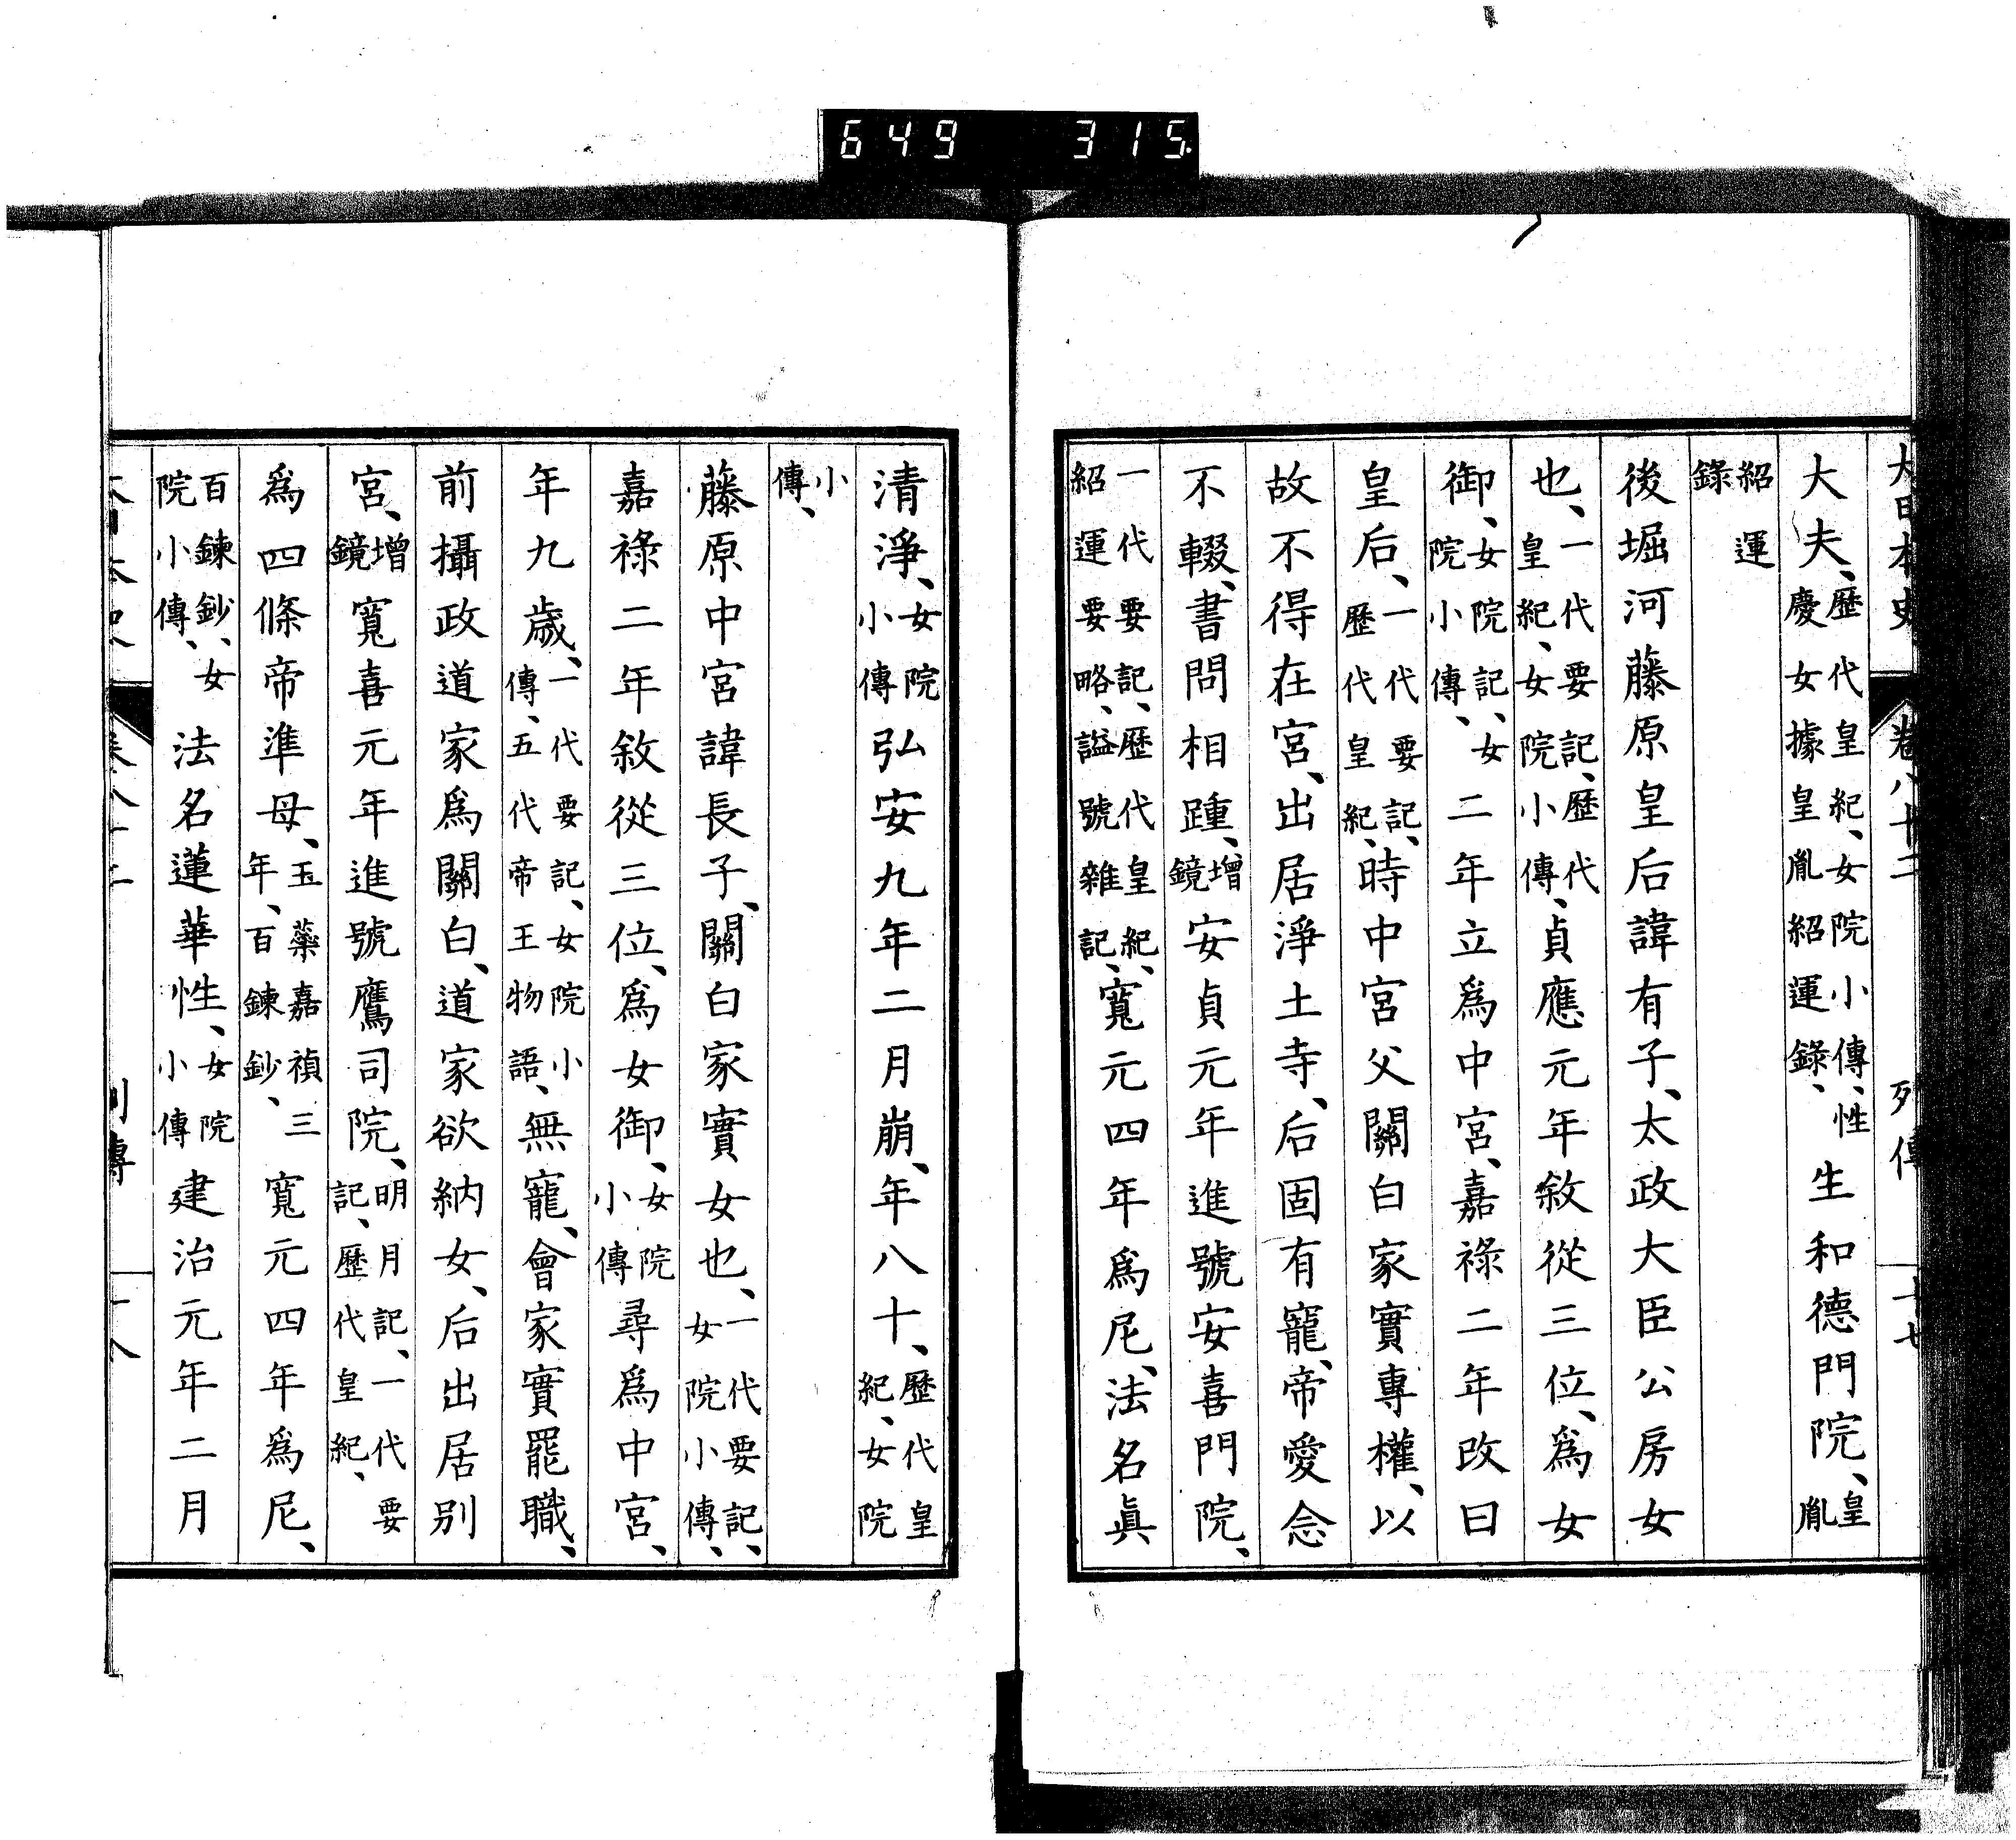 649 315.
大日本史 卷八十二 列傳 十七
大夫、歷代皇紀、女院小傳、性慶女據皇胤紹運錄、生和德門院、皇胤
紹運錄
後堀河藤原皇后諱有子、太政大臣公房女
也、一代要記、歷代皇紀、女院小傳、貞應元年敘從三位、爲女
御、女院記、女院小傳、二年立爲中宮、嘉祿二年改曰
皇后、一代要記、歷代皇紀、時中宮父關白家實專權、以
故不得在宮、出居淨土寺、后固有寵、帝愛念
不輟、書問相踵、增鏡安貞元年進號安喜門院、
一代要記、歷代皇紀、紹運要略、謚號雜記、寬元四年爲尼、法名眞
清淨、女院小傳弘安九年二月崩、年八十、歷代皇紀、女院
小傳、
藤原中宮諱長子、關白家實女也、一代要記、女院小傳、
嘉祿二年敘從三位、爲女御、女院小傳尋爲中宮、
年九歲、一代要記、女院小傳、五代帝王物語、無寵、會家實罷職、
前攝政道家爲關白、道家欲納女、后出居別
宮、增鏡寬喜元年進號鷹司院、明月記、一代要記、歷代皇紀、
爲四條帝準母、玉蘂嘉禎三年、百鍊鈔、寬元四年爲尼、
百鍊鈔、女院小傳、法名蓮華性、女院小傳建治元年二月